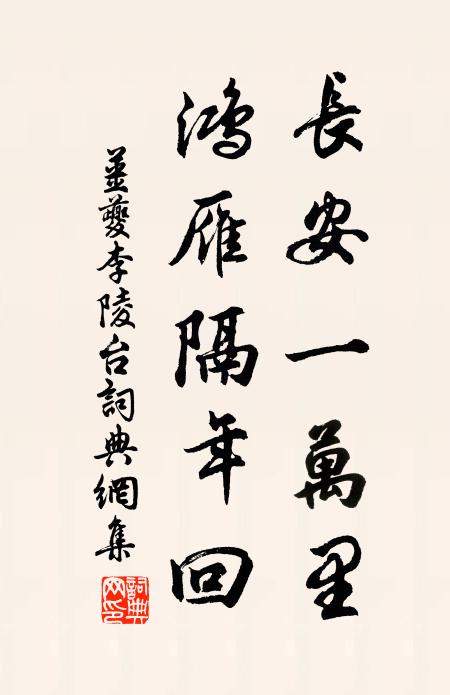 長安一萬里
鴻雁隔年回
薑夔李陵台詞典網集
詞典网印